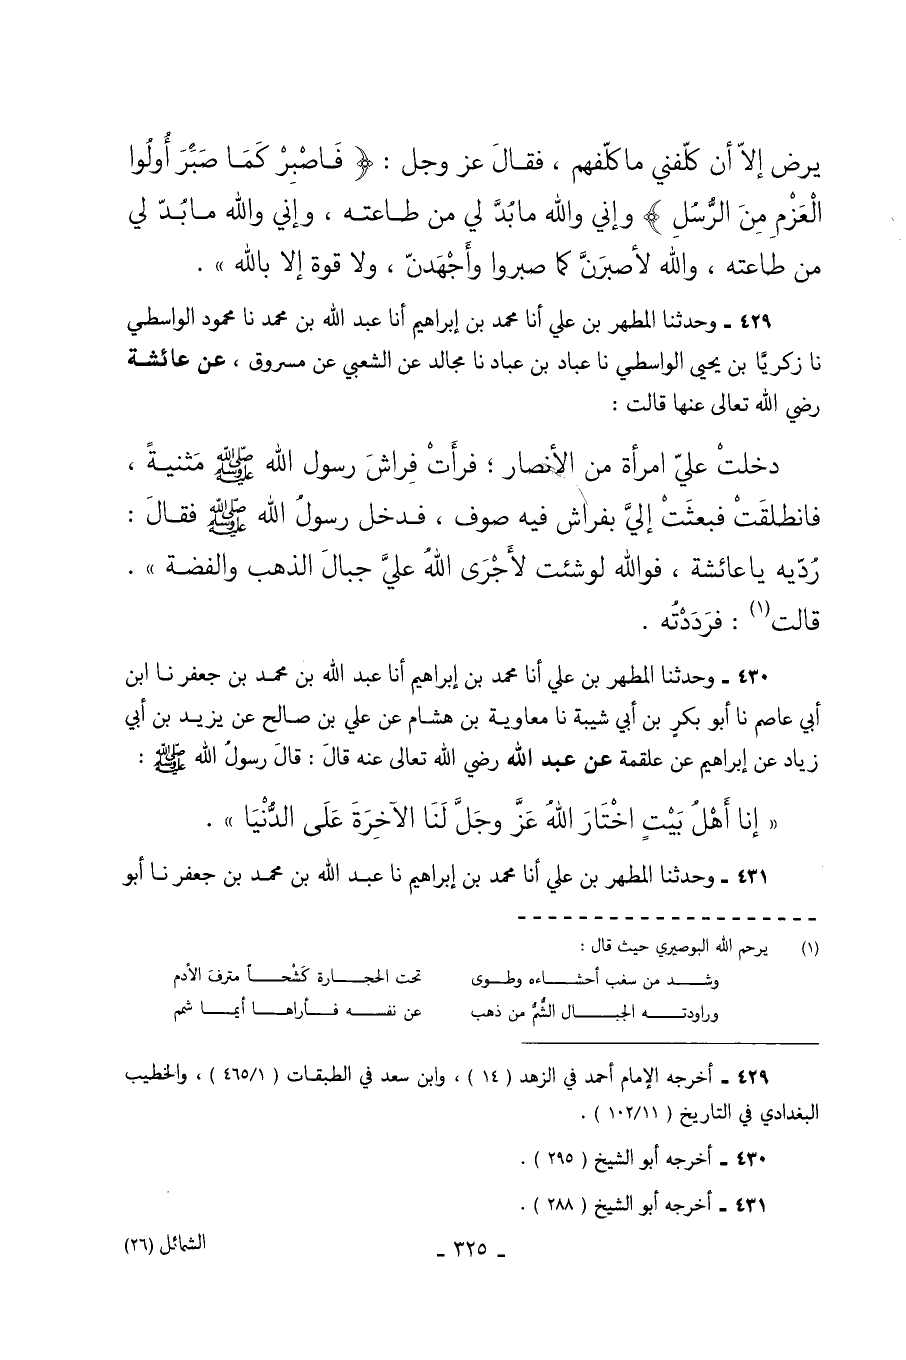 يرض إلاّ أن كلّفني ماكلّفهم ، فقالَ عز وجل : ﴿ فَاصْبِرْ كَمَا صَبَرَ أُولُوا
الْعَزْمِ مِنَ الرُّسُلِ ﴾ وإني والله مابُدَّ لي من طاعته ، وإني والله مابُدّ لي
من طاعته ، والله لأصبرَنَّ كما صبروا وأَجْهَدنّ ، ولا قوة إلا بالله » .
٤٢٩ ـ وحدثنا المطهر بن علي أنا محمد بن إبراهيم أنا عبد الله بن محمد نا محمود الواسطي
نا زكريّا بن يحيى الواسطي نا عباد بن عباد نا مجالد عن الشعبي عن مسروق ، عن عائشة
رضي الله تعالى عنها قالت :
دخلتْ عليّ امرأة من الأنصار ؛ فرأَتْ فِراشَ رسول الله ﷺ مَثنيةً ،
فانطلقَتْ فبعثَتْ إليَّ بفراش فيه صوف ، فدخل رسولُ الله ﷺ فقالَ :
رُدّيه ياعائشة ، فوالله لوشئت لأَجْرَى اللهُ عليَّ جبالَ الذهب والفضة » .
قالت(١) : فرَدَدْتُه .
٤٣٠ ـ وحدثنا المطهر بن علي أنا محمد بن إبراهيم أنا عبد الله بن محمد بن جعفر نا ابن
أبي عاصم نا أبو بكرٍ بن أبي شيبة نا معاوية بن هشام عن علي بن صالح عن يزيد بن أبي
زياد عن إبراهيم عن علقمة عن عبد الله رضي الله تعالى عنه قالَ : قالَ رسولُ الله ﷺ :
« إنا أَهْلُ بَيْتٍ اخْتَارَ اللهُ عَزَّ وجَلَّ لَنَا الآخِرَةَ عَلَى الدُّنْيَا » .
٤٣١ ـ وحدثنا المطهر بن علي أنا محمد بن إبراهيم نا عبد الله بن محمد بن جعفر نا أبو
(١) يرحم الله البوصيري حيث قال :
وشد من سغب أحشاءه وطوى تحت الحجارة كَشْحاً مترفَ الأدم
وراودته الجبال الشُّمُّ من ذهب عن نفسه فأراها أيما شمم
٤٢٩ ـ أخرجه الإمام أحمد في الزهد ( ١٤ ) ، وابن سعد في الطبقات ( ٤٦٥/١ ) ، والخطيب
البغدادي في التاريخ ( ١٠٢/١١ ) .
٤٣٠ ـ أخرجه أبو الشيخ ( ٢٩٥ ) .
٤٣١ ـ أخرجه أبو الشيخ ( ٢٨٨ ) .
ـ ٣٢٥ ـ
الشمائل (٢٦)